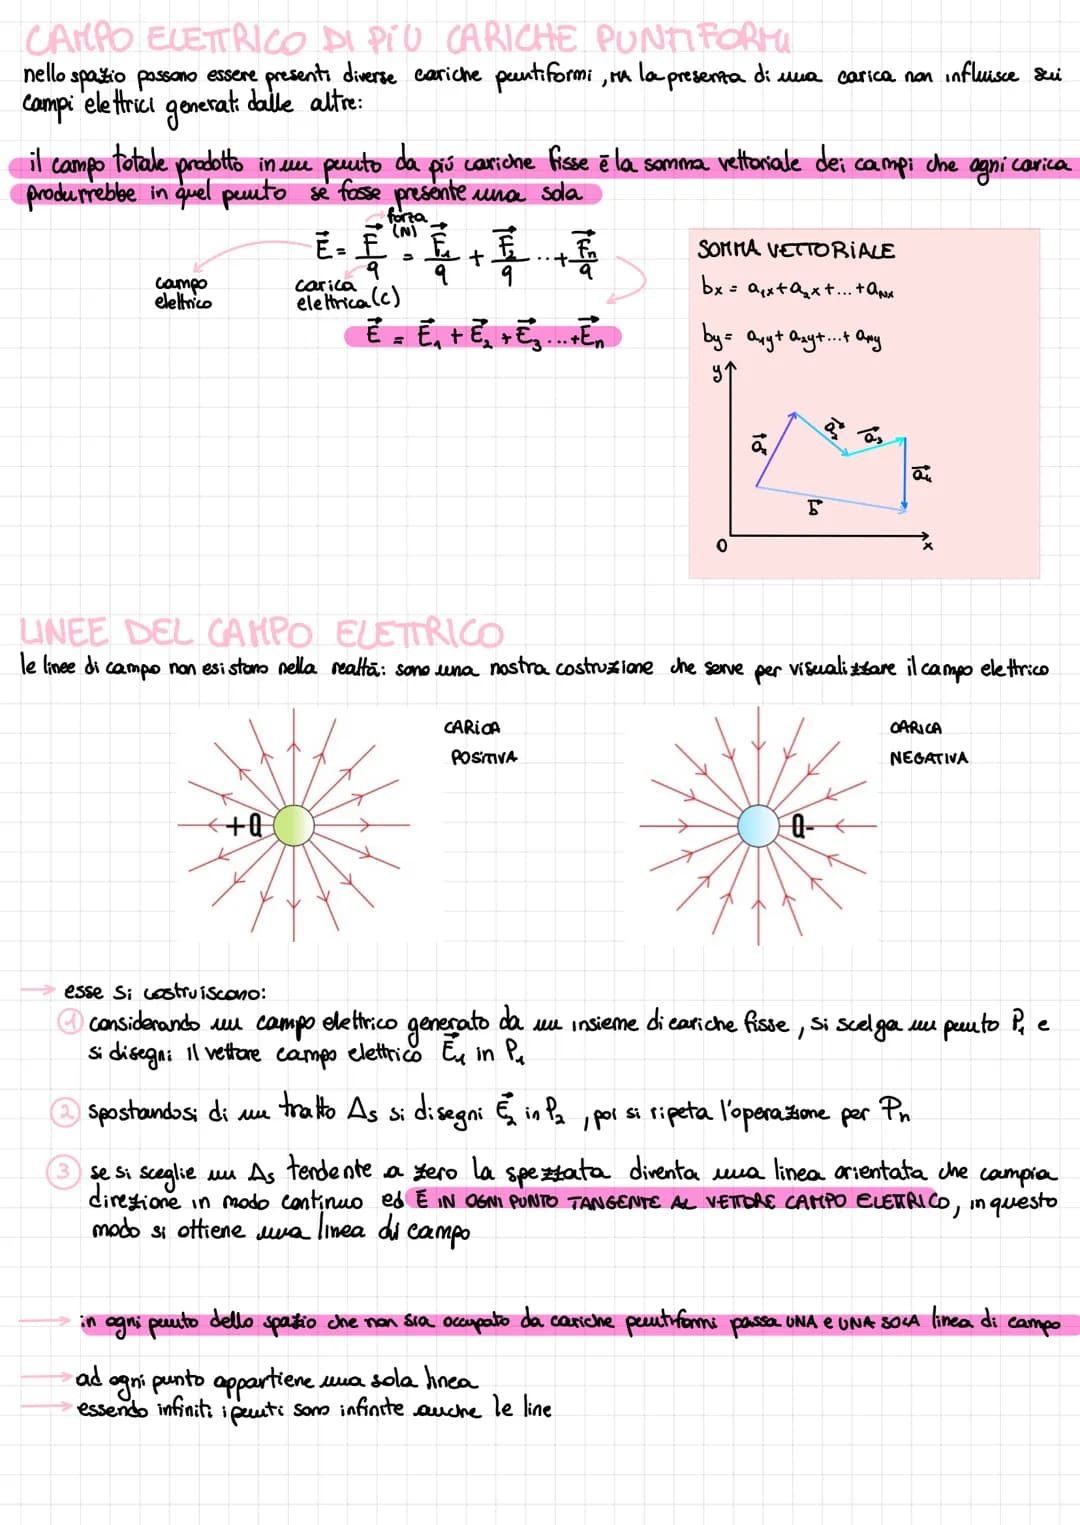 CAMPO ELETTRICO DI PIÙ CARICHE PUNTIFORMI
nello spazio possono essere presenti diverse cariche puntiformi, MA la presenza di una carica non influisce sui
campi elettrici generati dalle altre:
il campo totale prodotto in un punto da più cariche fisse è la somma vettoriale dei campi che ogni carica
produrrebbe in quel punto se fosse presente una sola
forza
(N)
E⃗ = F⃗/q = F⃗₁/q + F⃗₂/q ..+ F⃗n/q
campo
elettrico
carica
elettrica (C)
E⃗ = E⃗₁ + E⃗₂ + E⃗₃ ... + E⃗n
SOMMA VETTORIALE
bx = a₁x + a₂x + ... + aNx
by = a₁y + a₂y + ... + aNy
y
a⃗₁
a⃗₂
a⃗₃
a⃗₄
b⃗
O
x
LINEE DEL CAMPO ELETTRICO
le linee di campo non esistono nella realtà: sono una nostra costruzione che serve per visualizzare il campo elettrico
CARICA
POSITIVA
+Q
CARICA
NEGATIVA
Q-
→ esse si costruiscono:
① considerando un campo elettrico generato da un insieme di cariche fisse, si scelga un punto P₁ e
si disegni il vettore campo elettrico E⃗₁ in P₁
② spostandosi di un tratto Δs si disegni E⃗₂ in P₂, poi si ripeta l'operazione per Pn
③ se si sceglie un Δs tendente a zero la spezzata diventa una linea orientata che campia
direzione in modo continuo ed È IN OGNI PUNTO TANGENTE AL VETTORE CAMPO ELETTRICO, in questo
modo si ottiene una linea di campo
→ in ogni punto dello spazio che non sia occupato da cariche puntiformi passa UNA e UNA SOLA linea di campo
→ ad ogni punto appartiene una sola linea
→ essendo infiniti i punti sono infinite anche le line